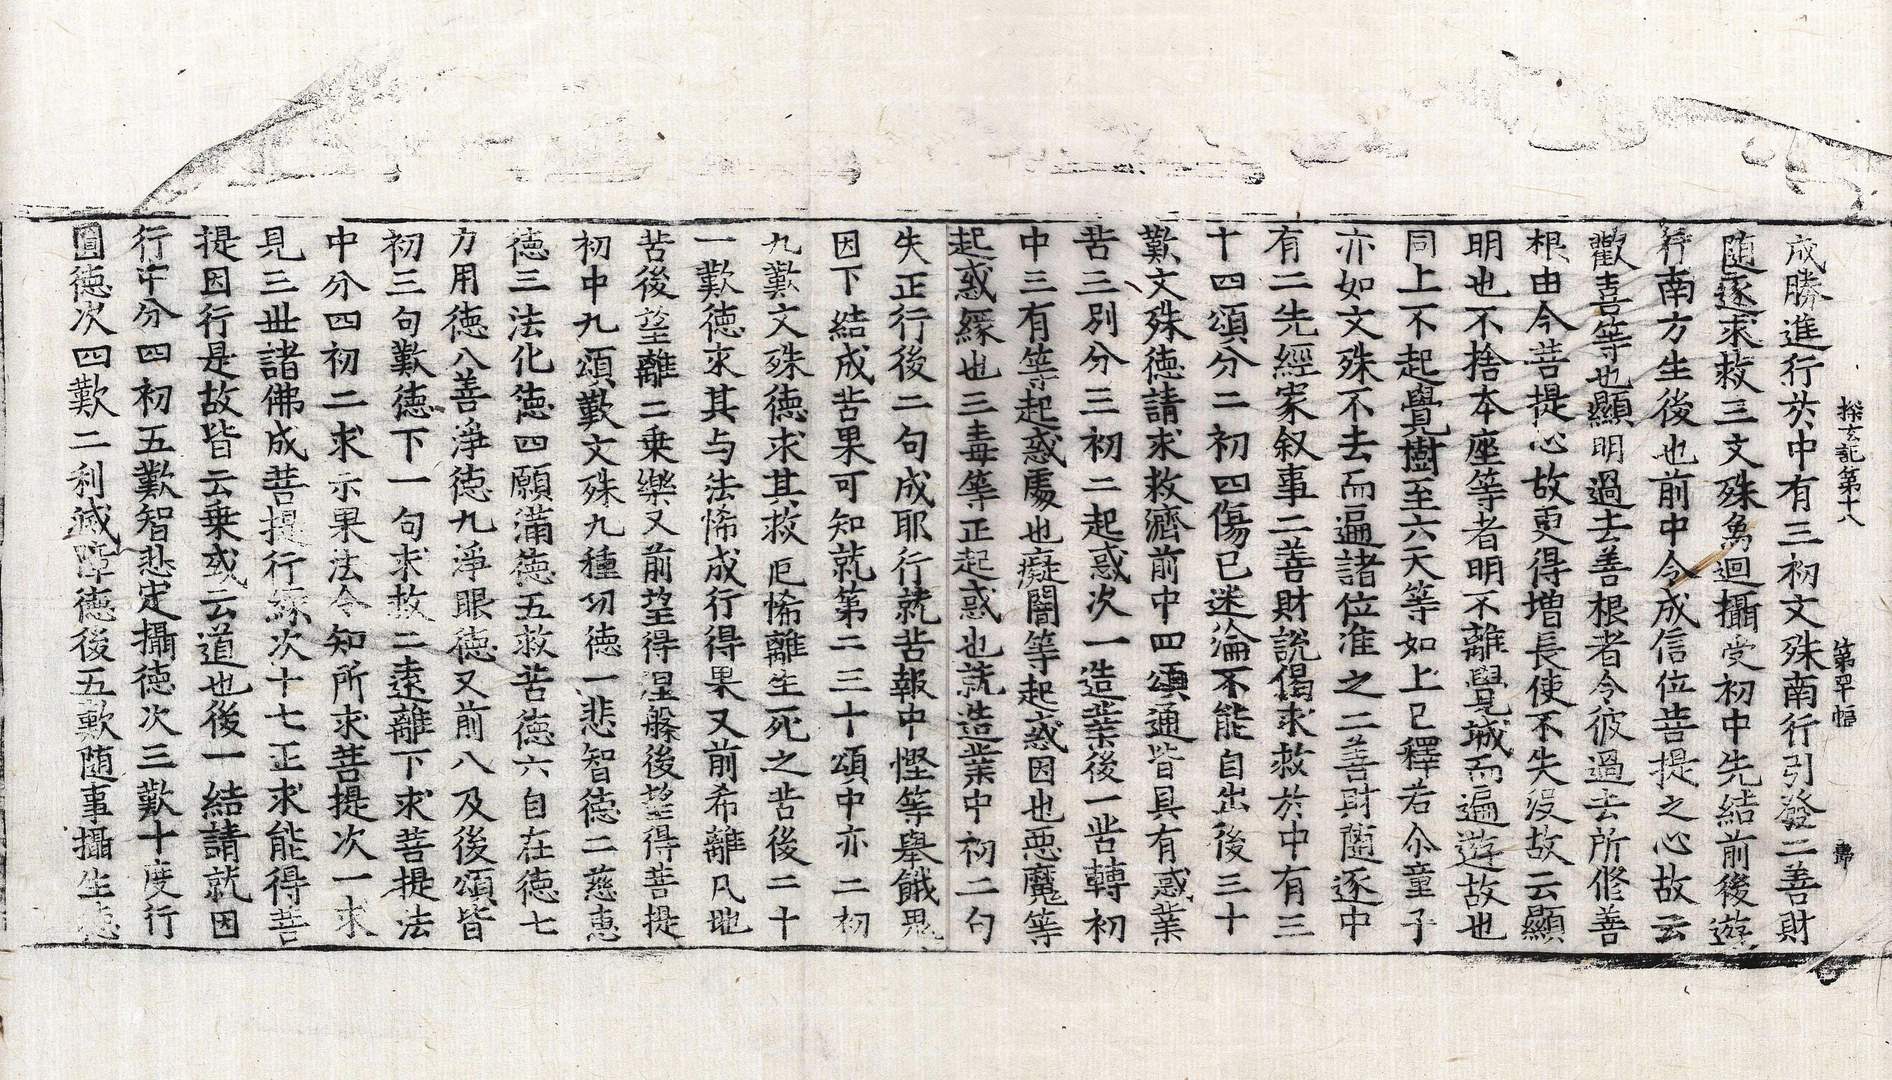 探玄記第十八　第四十幅　歸
成勝進行於中有三初文殊南行引發二善財
随逐求救三文殊為迴攝受初中先結前後遊
行南方生後也前中令成信位菩提之心故云
歡喜等也顯明過去善根者令彼過去所修善
根由今菩提心故更得增長使不失没故云顯
明也不捨本座等者明不離覺城而遍遊故也
同上不起覺樹至六天等如上已釋若尒童子
亦如文殊不去而遍諸位准之二善財随逐中
有二先經家叙事二善財說偈求救於中有三
十四頌分二初四傷已迷淪不能自出後三十
歎文殊徳請求救濟前中四頌通皆具有惑業
苦三別分三初二起惑次一造業後一苦轉初
中三有等起惑處也癡闇等起惑因也悪魔等
起惑緣也三毒等正起惑也就造業中初二句
失正行後二句成耶行就苦報中慳等舉餓鬼
因下結成苦果可知就第二三十頌中亦二初
九歎文殊徳求其救厄怖離生死之苦後二十
一歎徳求其与法悕成行得果又前希離凡地
苦後望離二乗樂又前望得涅槃後望得菩提
初中九頌歎文殊九種功徳一悲智徳二慈惠
徳三法化徳四願滿徳五救苦徳六自在徳七
力用徳八善淨徳九淨眼徳又前八及後頌皆
初三句歎徳下一句求救二遠離下求菩提法
中分四初二求示果法令知所求菩提次一求
見三世諸佛成菩提行緣次十七正求能得菩
提因行是故皆云乗或云道也後一結請就因
行中分四初五歎智悲定攝徳次三歎十度行
圓徳次四歎二利滅障徳後五歎随事攝生徳